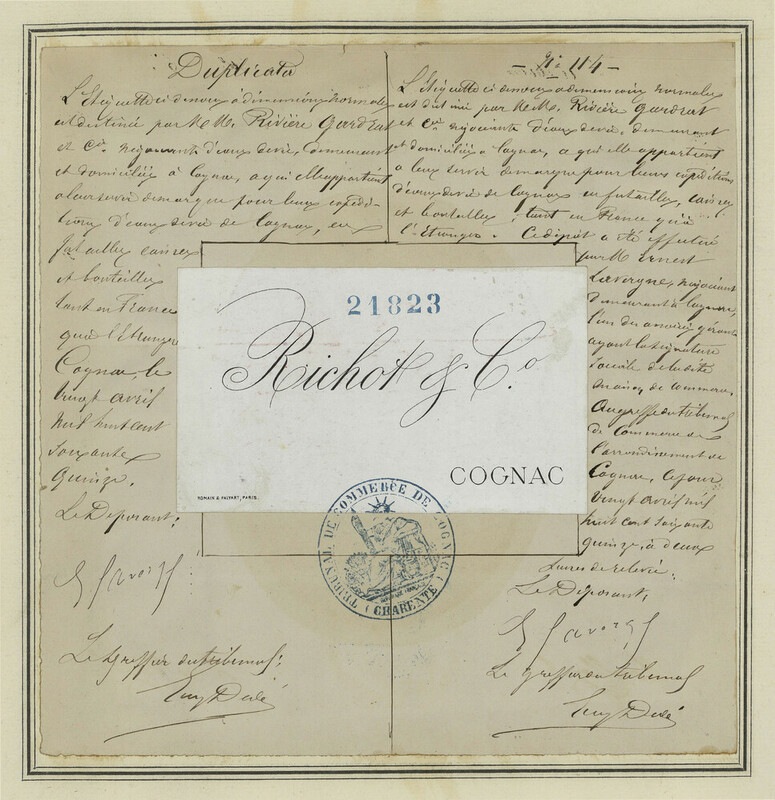 Duplicata
L'Etiquette ci dessous a dimensions normales
est destinée par MM. Rivière Gardrat
et Cie négociants d'eaux de vie, demeurant
et domiciliés à Cognac, a qui elle appartient
a leur servir de marque pour leurs expédi-
tions d'eaux de vie de Cognac, en
futailles caisses
et bouteilles
tant en France
qu'à l'Etranger
Cognac, le
vingt avril
mil huit cent
soixante
quinze.
Le Déposant,
E Lavergne
Le Greffier du tribunal:
- No 114 -
L'Etiquette ci dessous a dimensions normales
est destinée par MM. Rivière Gardrat
et Cie négociants d'eaux de vie, demeurant
et domiciliés à Cognac, a qui elle appartient
a leur servir de marque pour leurs expéditions
d'eaux de vie de Cognac en futailles, caisses
et bouteilles, tant en France qu'à
l'Etranger. Ce dépôt a été effectué
par M Ernest
Lavergne, négociant
demeurant à Cognac,
l'un des associés gérants
ayant la signature
sociale de la dite
maison de commerce.
Au greffe du tribunal
de Commerce de
l'arrondissement de
Cognac, ce jour
vingt avril mil
huit cent soixante
quinze, à deux
heures de relevée.
Le Déposant,
E Lavergne
Le greffier du tribunal
21823
Richot & Co.
COGNAC
ROMAIN & PALYART, PARIS.
TRIBUNAL DE COMMERCE DE COGNAC
(CHARENTE)